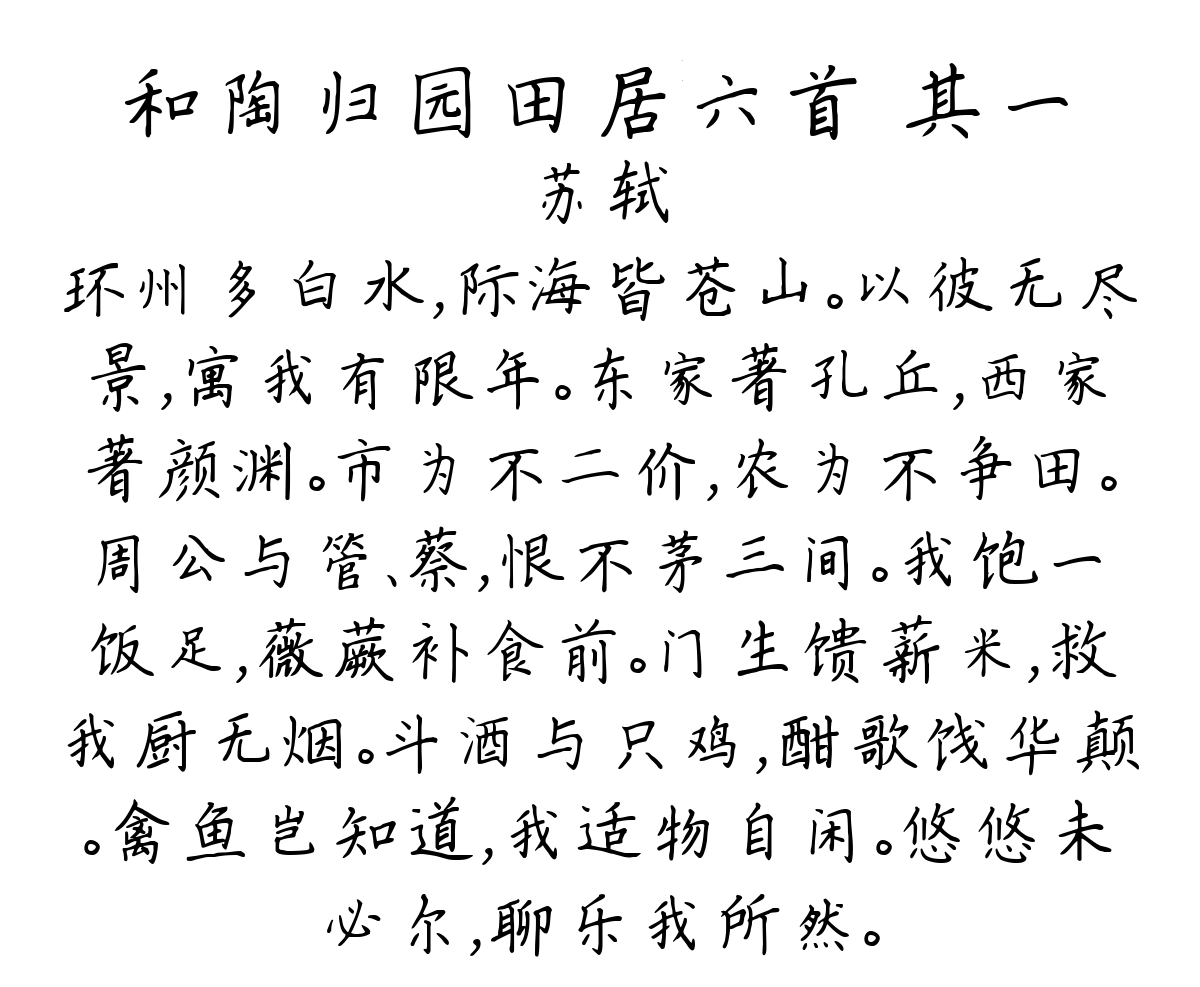 和陶归园田居六首 其一
苏轼
环州多白水,际海皆苍山。以彼无尽
景,寓我有限年。东家著孔丘,西家
著颜渊。市为不二价,农为不争田。
周公与管、蔡,恨不茅三间。我饱一
饭足,薇蕨补食前。门生馈薪米,救
我厨无烟。斗酒与只鸡,酣歌饯华颠
。禽鱼岂知道,我适物自闲。悠悠未
必尔,聊乐我所然。